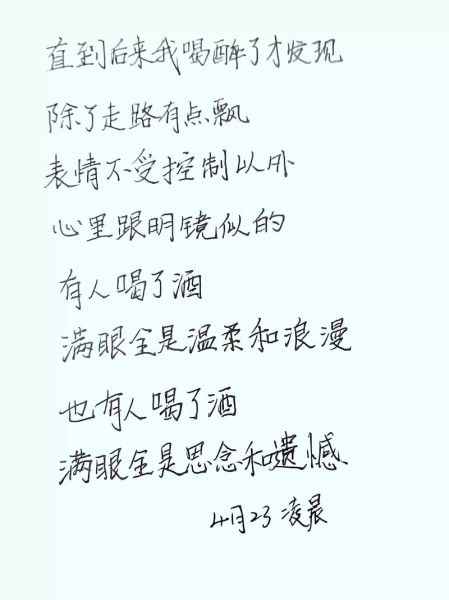 直到后来我喝醉了才发现
除了走路有点飘
表情不受控制以外
心里跟明镜似的
有人喝了酒
满眼全是温柔和浪漫
也有人喝了酒
满眼全是思念和遗憾
4月23凌晨